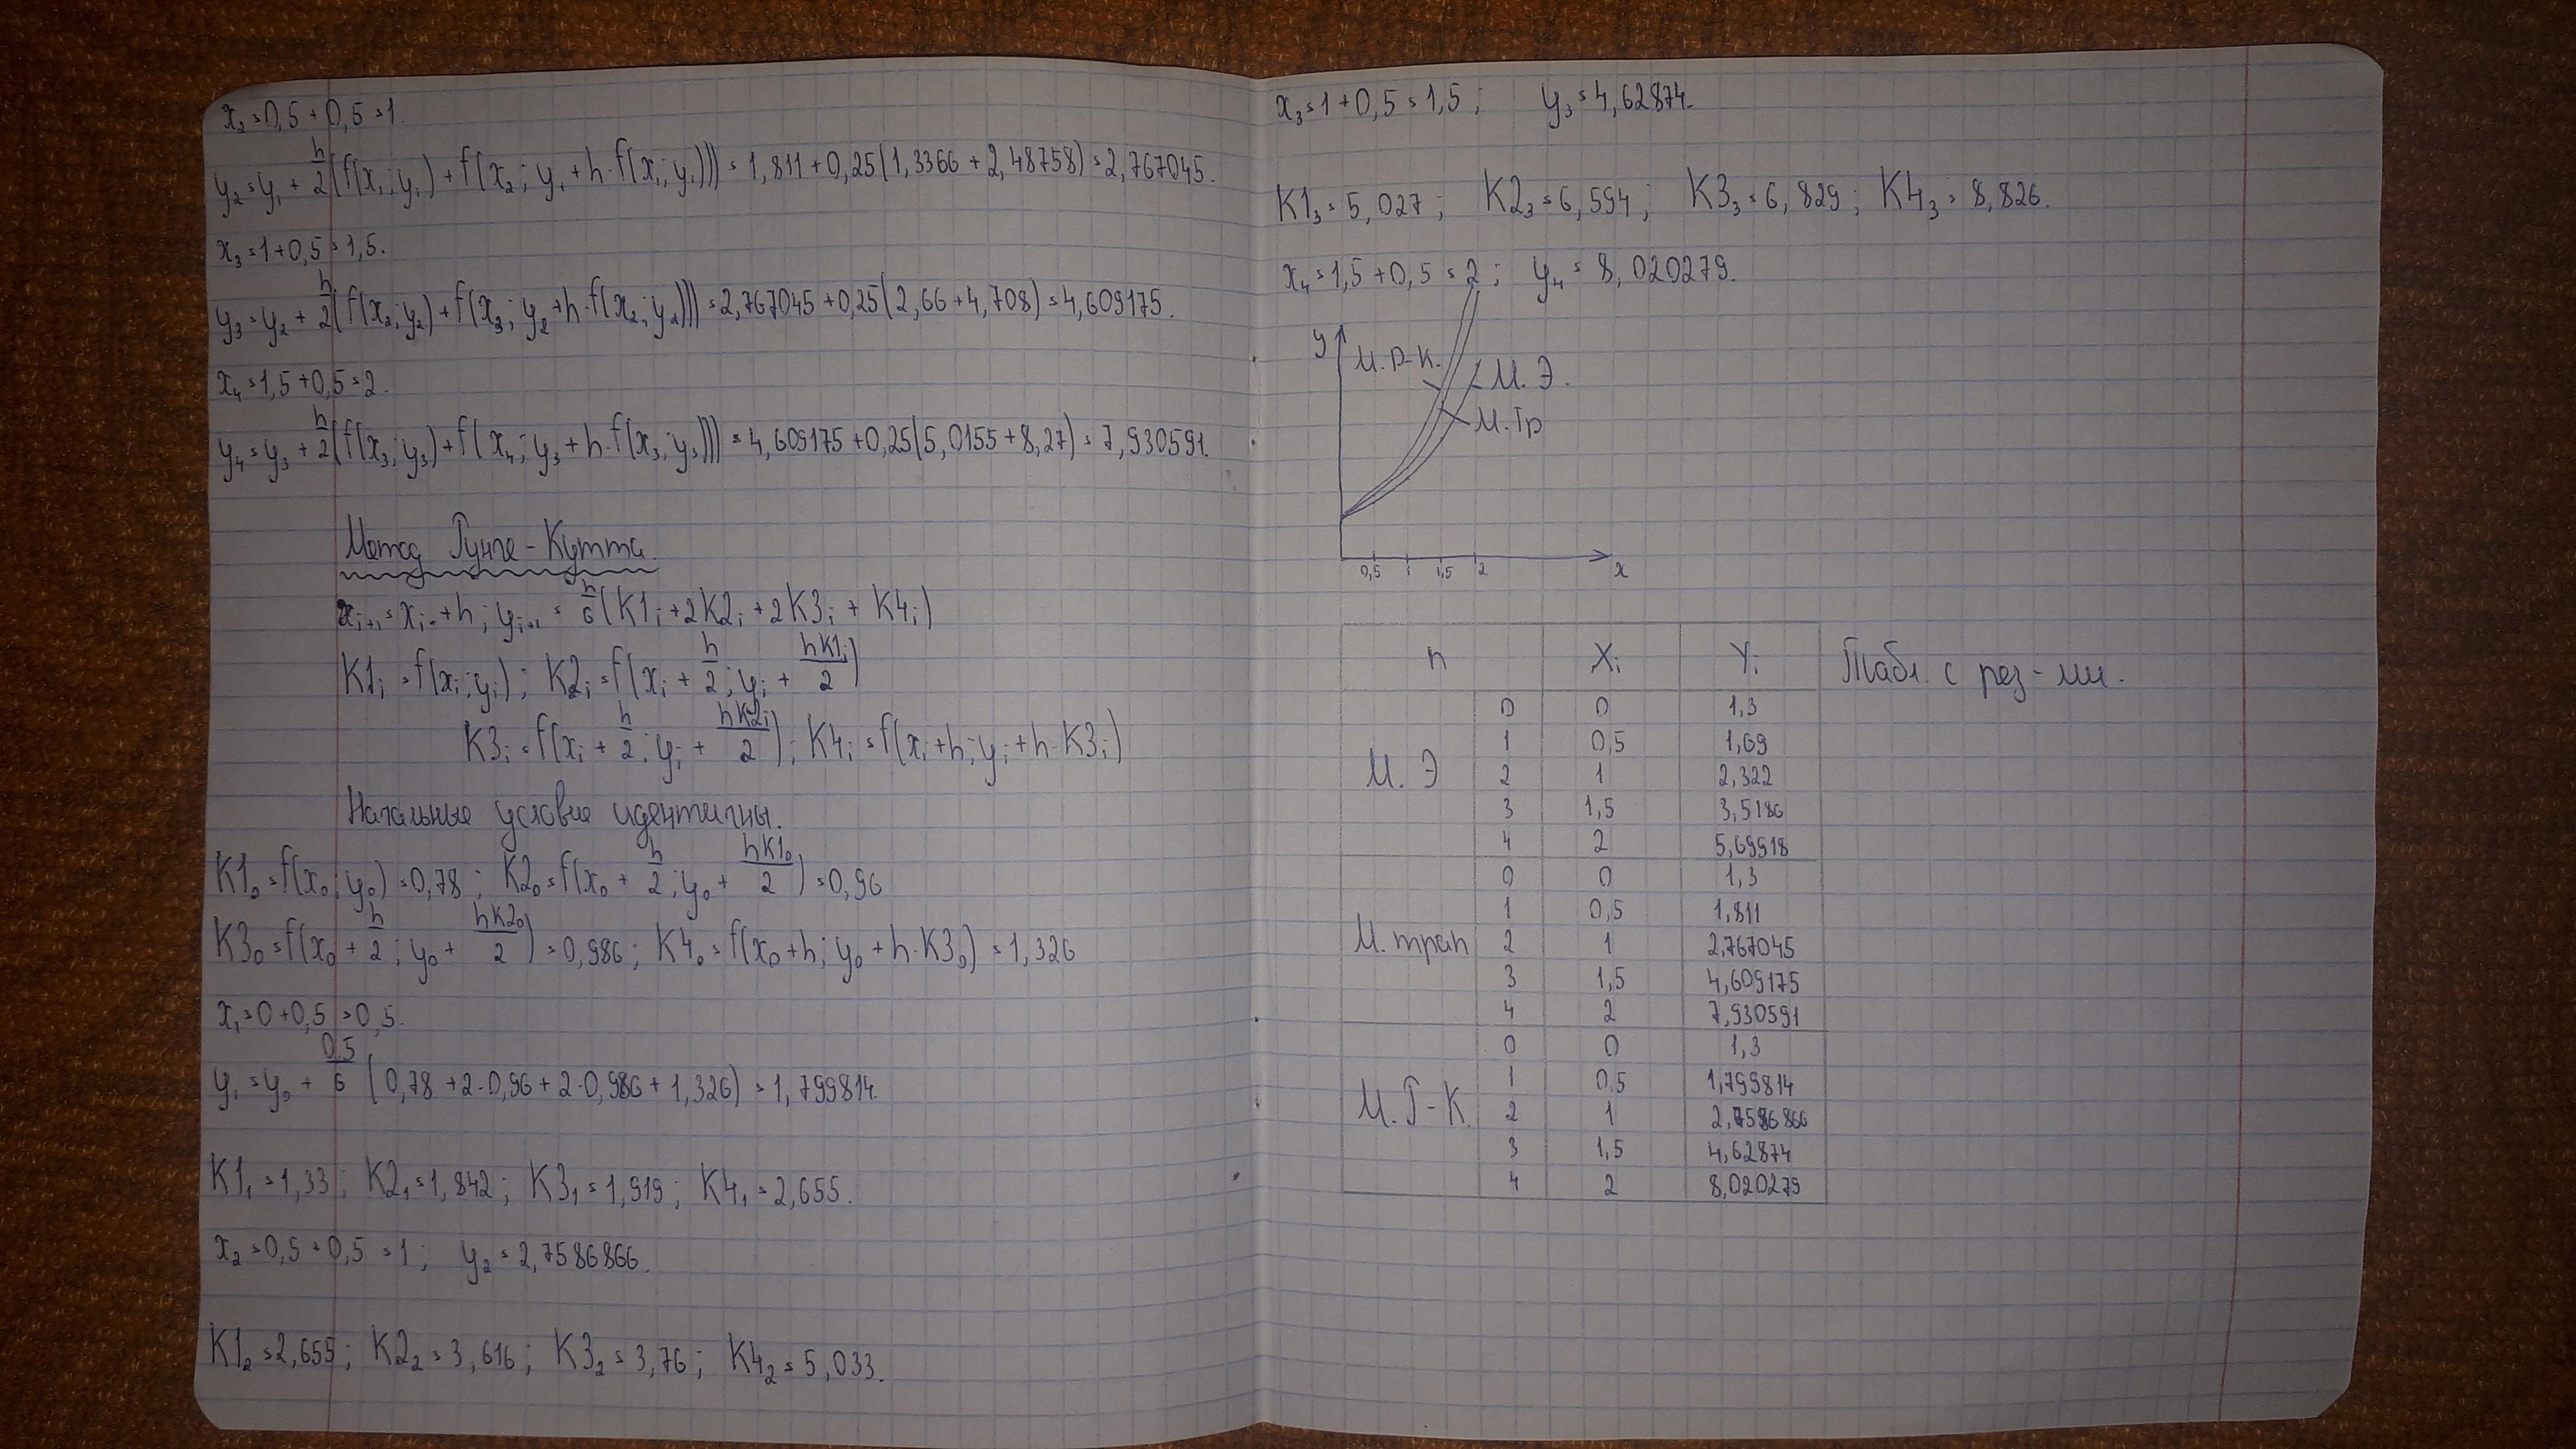 x₂=0,5+0,5=1.
y₂=y₁+h/2(f(x₁;y₁)+f(x₂;y₁+h·f(x₁;y₁)))=1,811+0,25(1,3366+2,48758)=2,767045.
x₃=1+0,5=1,5.
y₃=y₂+h/2(f(x₂;y₂)+f(x₃;y₂+h·f(x₂;y₂)))=2,767045+0,25(2,66+4,708)=4,609175.
x₄=1,5+0,5=2.
y₄=y₃+h/2(f(x₃;y₃)+f(x₄;y₃+h·f(x₃;y₃)))=4,609175+0,25(5,0155+8,27)=7,930591.
Метод Рунге-Кутта.
xᵢ₊₁=xᵢ+h; yᵢ₊₁=h/6(K1ᵢ+2K2ᵢ+2K3ᵢ+K4ᵢ)
K1ᵢ=f(xᵢ;yᵢ); K2ᵢ=f(xᵢ+h/2;yᵢ+hK1ᵢ/2)
K3ᵢ=f(xᵢ+h/2;yᵢ+hK2ᵢ/2); K4ᵢ=f(xᵢ+h;yᵢ+h·K3ᵢ)
Начальные условие идентичны.
K1₀=f(x₀;y₀)=0,78; K2₀=f(x₀+h/2;y₀+hK1₀/2)=0,96
K3₀=f(x₀+h/2;y₀+hK2₀/2)=0,986; K4₀=f(x₀+h;y₀+h·K3₀)=1,326
x₁=0+0,5=0,5.
y₁=y₀+0,5/6(0,78+2·0,96+2·0,986+1,326)=1,799814.
K1₁=1,33; K2₁=1,842; K3₁=1,919; K4₁=2,655.
x₂=0,5+0,5=1; y₂=2,7586866.
K1₂=2,655; K2₂=3,616; K3₂=3,76; K4₂=5,033.
x₃=1+0,5=1,5; y₃=4,62874.
K1₃=5,027; K2₃=6,594; K3₃=6,829; K4₃=8,826.
x₄=1,5+0,5=2; y₄=8,020279.
y
М.Р-К.
М.Э.
М.Тр
0,5 1 1,5 2 x
n Xᵢ Yᵢ Табл. с рез-ми.
М.Э
0 0 1,3
1 0,5 1,69
2 1 2,322
3 1,5 3,5186
4 2 5,69918
М.трап
0 0 1,3
1 0,5 1,811
2 1 2,767045
3 1,5 4,609175
4 2 7,930591
М.Р-К.
0 0 1,3
1 0,5 1,799814
2 1 2,7586866
3 1,5 4,62874
4 2 8,020279